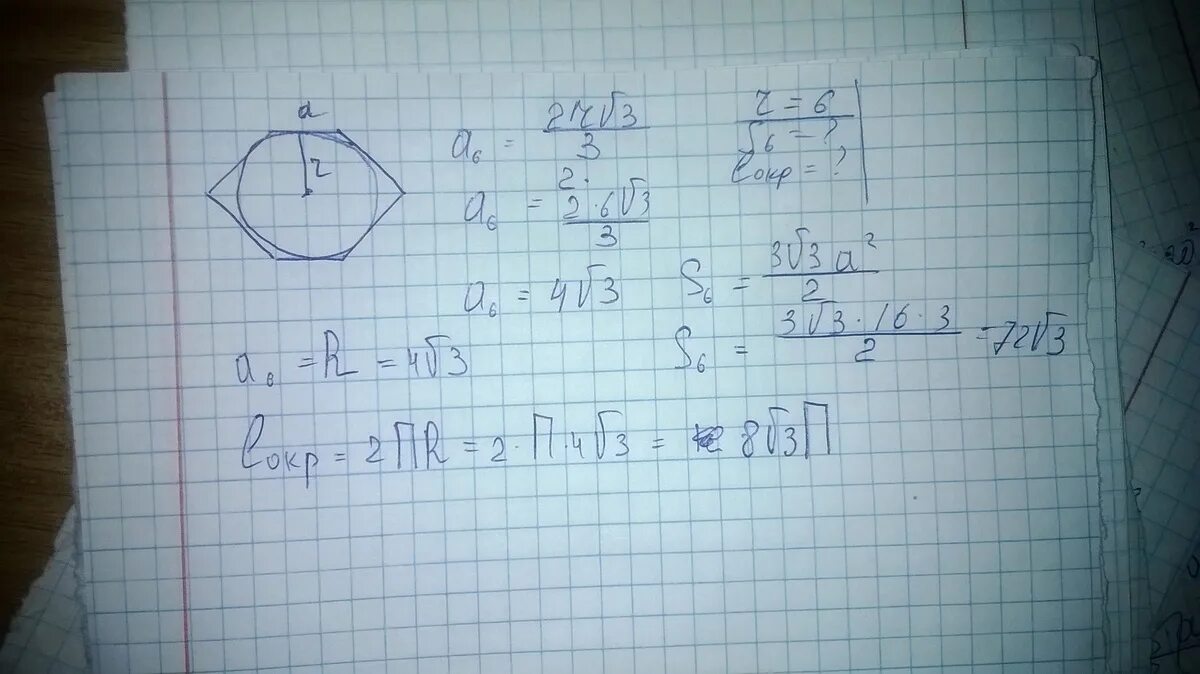 a
r
a₆ = 2r√3 / 3
r = 6
S₆ = ?
lокр = ?
2·
a₆ = 2·6√3 / 3
a₆ = 4√3
S₆ = 3√3 a² / 2
S₆ = 3√3·16·3 / 2 = 72√3
a₆ = R = 4√3
lокр = 2ПR = 2·П·4√3 = 8√3П